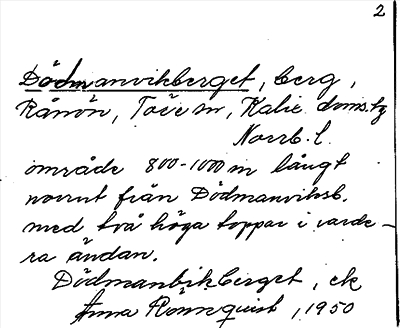 2
Dödmanvikberget, berg,
Rånön, Töre sn, Kalix doms.tg
Norrb. l.
område 800-1000 m långt
norrut från Dödmanviksb.
med två höga toppar i varde-
ra ändan.
Dödmanbikberget, ek
Anna Rönnquist, 1950